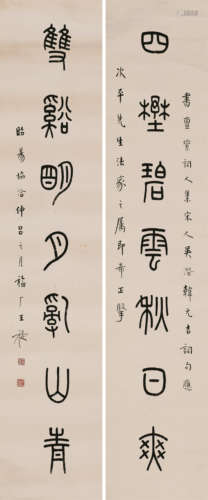 書詞人集宋人吳韓元吉詞句應
四碧雲秋日爽
次平先生法家之屬即希正擘
雙谿明月亂山青
昭陽協洽仲呂之月福厂王禔